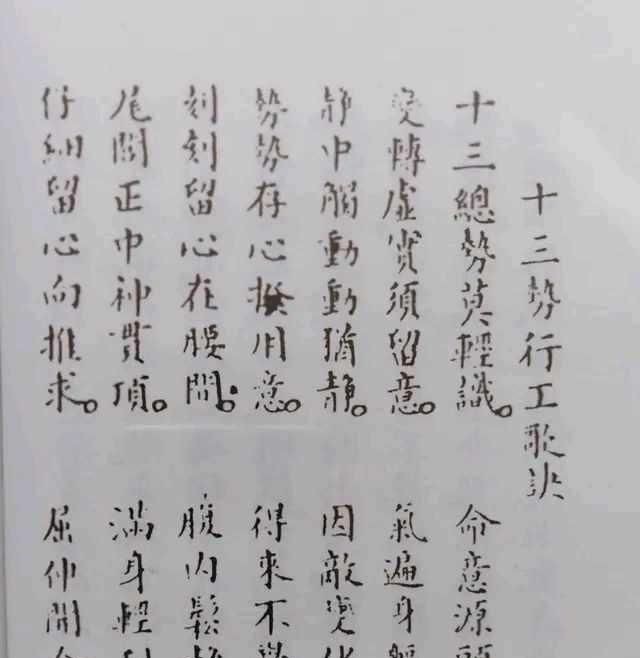 十三勢行工歌訣
十三總勢莫輕識。 命意源
變轉虛實須留意。 氣遍身
静中觸動動猶静。 因敵變
勢勢存心揆用意。 得來不
刻刻留心在腰間。 腹内鬆
尾閭正中神貫頂。 滿身輕
仔細留心向推求。 屈伸開